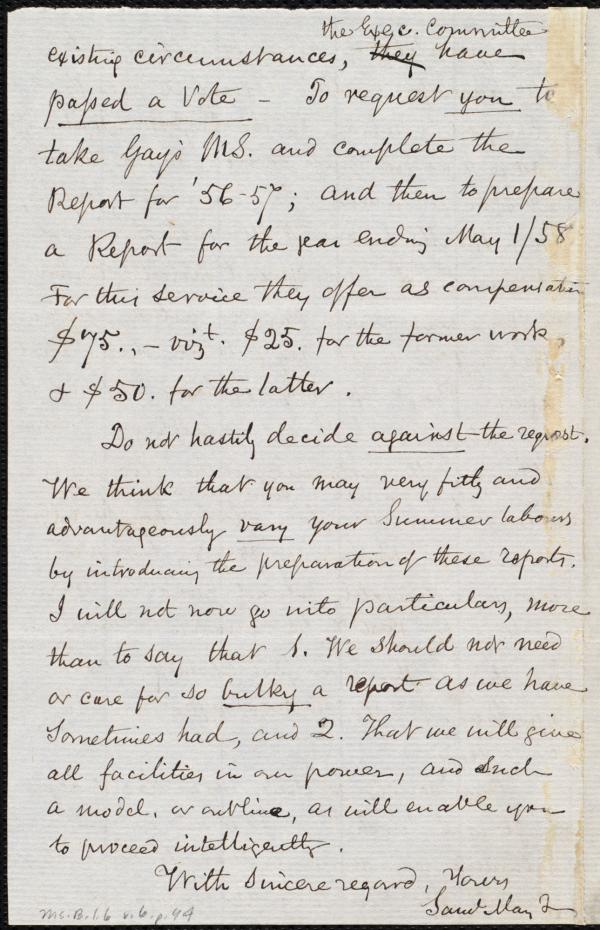 the Exec. Committee
existing circumstances, they have
passed a Vote – To request you to
take Gay's MS. and complete the
Report for '56-57; and then to prepare
a Report for the year ending May 1/58
For this service they offer as compensation
$75., – vizt. $25. for the former work,
& $50. for the latter.
Do not hastily decide against the request.
We think that you may very fitly and
advantageously vary your Summer labours
by introducing the preparation of these reports.
I will not now go into particulars, more
than to say that 1. We should not need
or care for so bulky a report as we have
sometimes had, and 2. That we will give
all facilities in our power, and such
a model, or outline, as will enable you
to proceed intelligently.
With sincere regard, Yours
Saml. May Jr
Ms.B.1.6 v.6, p.44